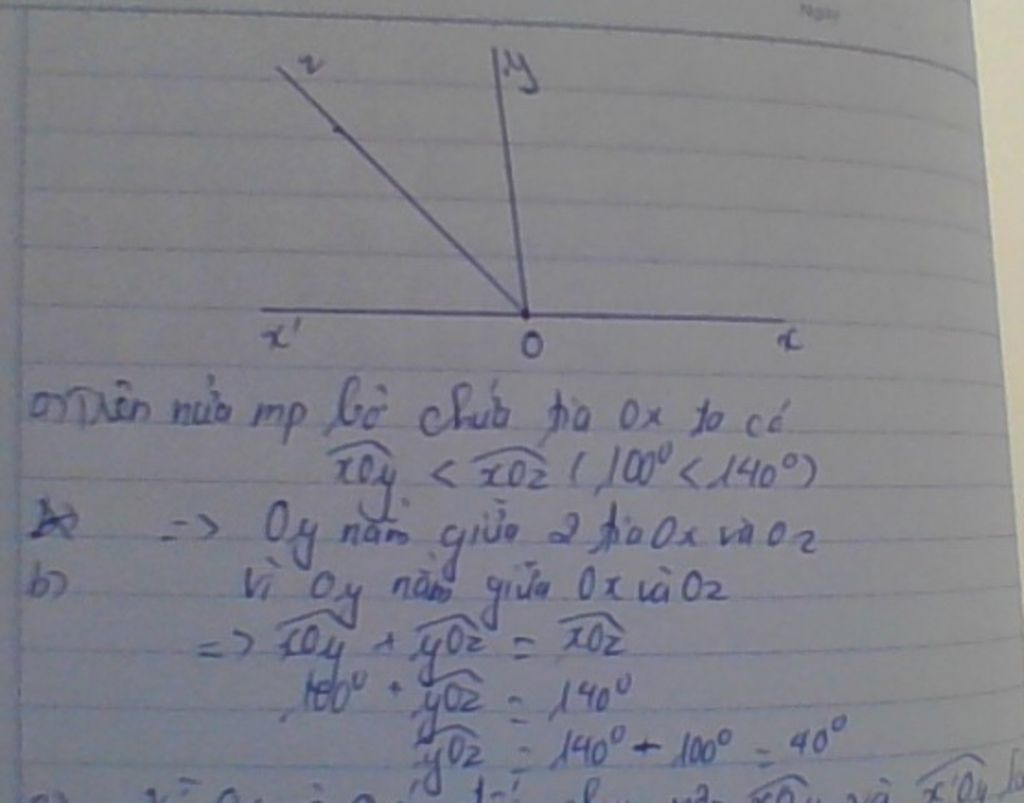 Ngày
z
y
x'
O
x
a) Trên nửa mp bờ chứa tia Ox ta có
xOy < xOz (100⁰ < 140⁰)
=> Oy nằm giữa 2 tia Ox và Oz
b) Vì Oy nằm giữa Ox và Oz
=> xOy + yOz = xOz
100⁰ + yOz = 140⁰
yOz = 140⁰ - 100⁰ = 40⁰
xOy và x'Oy